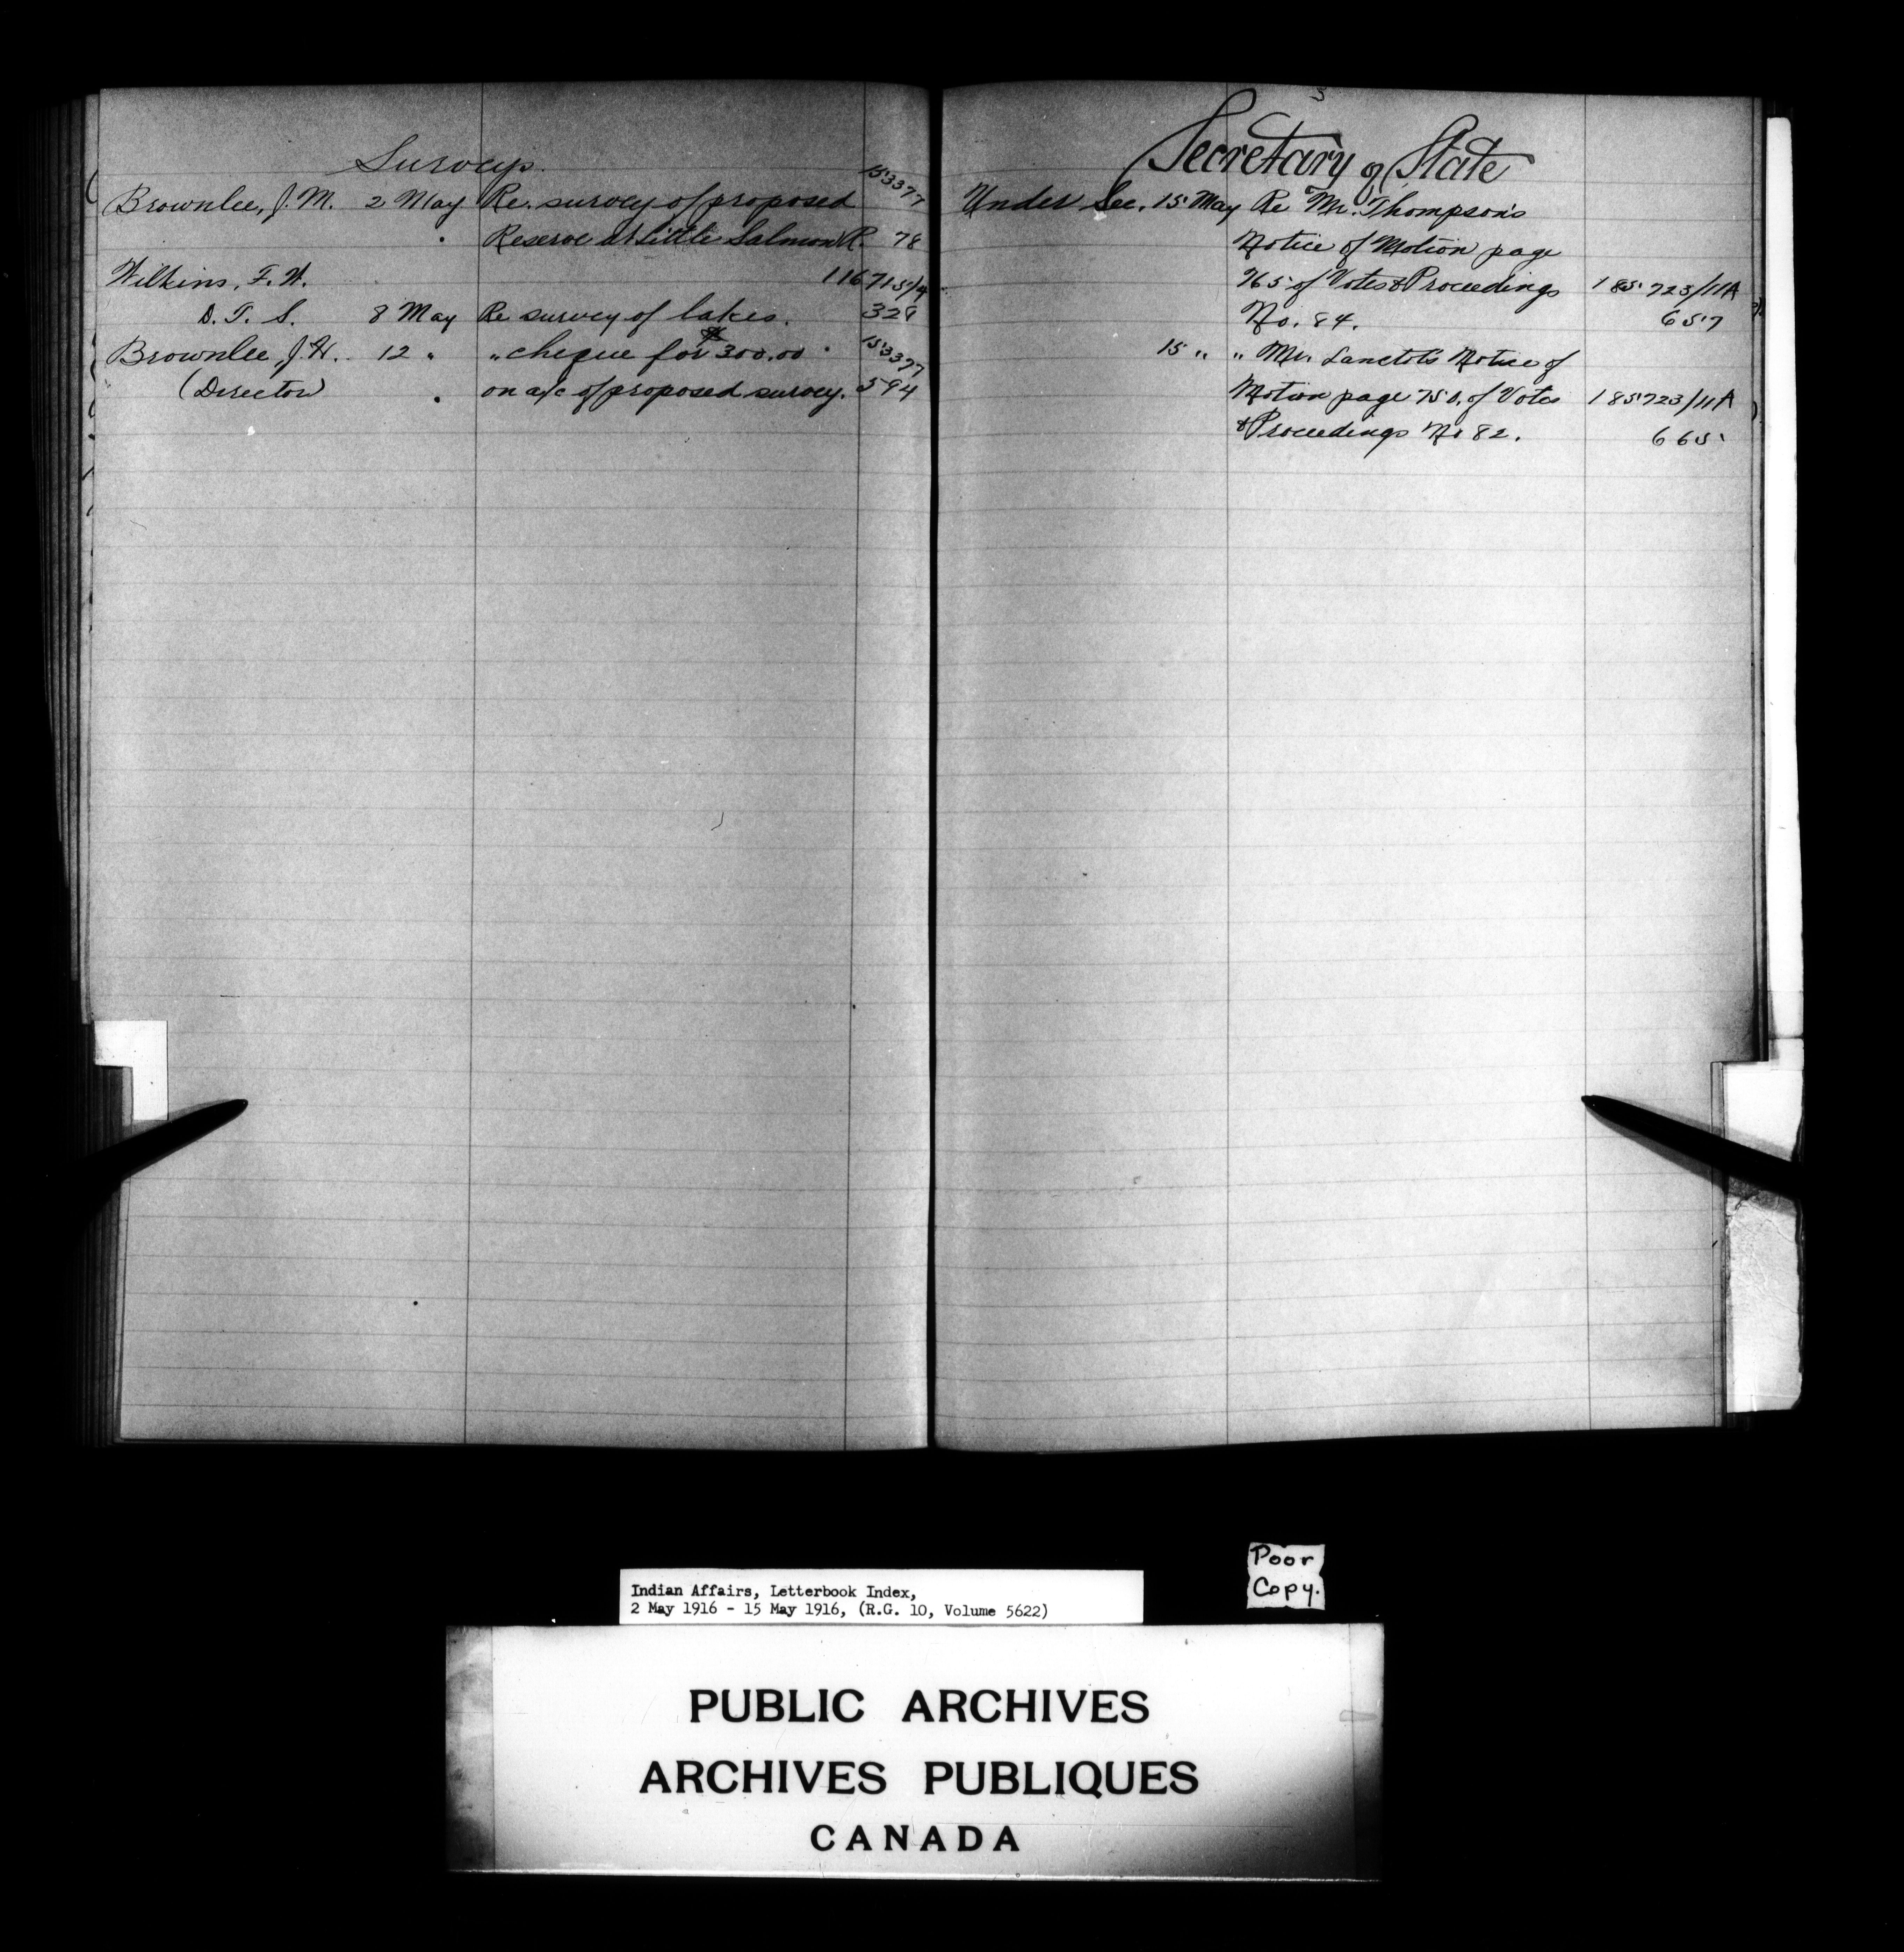 Surveys.
153377
Brownlee, J. M. 2 May Re. survey of proposed
Reserve at Little Salmon R. 78
Wilkins, F. W. 116715/4
D. T. S. 8 May Re survey of lakes. 329
Brownlee, J. H. 12 " " cheque for $300.00 153377
(Director) on a/c of proposed survey. 594
Secretary of State
Under Sec. 15 May Re Mr. Thompson's
Notice of Motion page
765 of Votes & Proceedings 185723/11A
No. 84. 657
15 " " Mr. Lanctot's Notice of
Motion page 750. of Votes 185723/11A
& Proceedings No 82. 665
Poor
Copy.
Indian Affairs, Letterbook Index,
2 May 1916 - 15 May 1916, (R.G. 10, Volume 5622)
PUBLIC ARCHIVES
ARCHIVES PUBLIQUES
CANADA